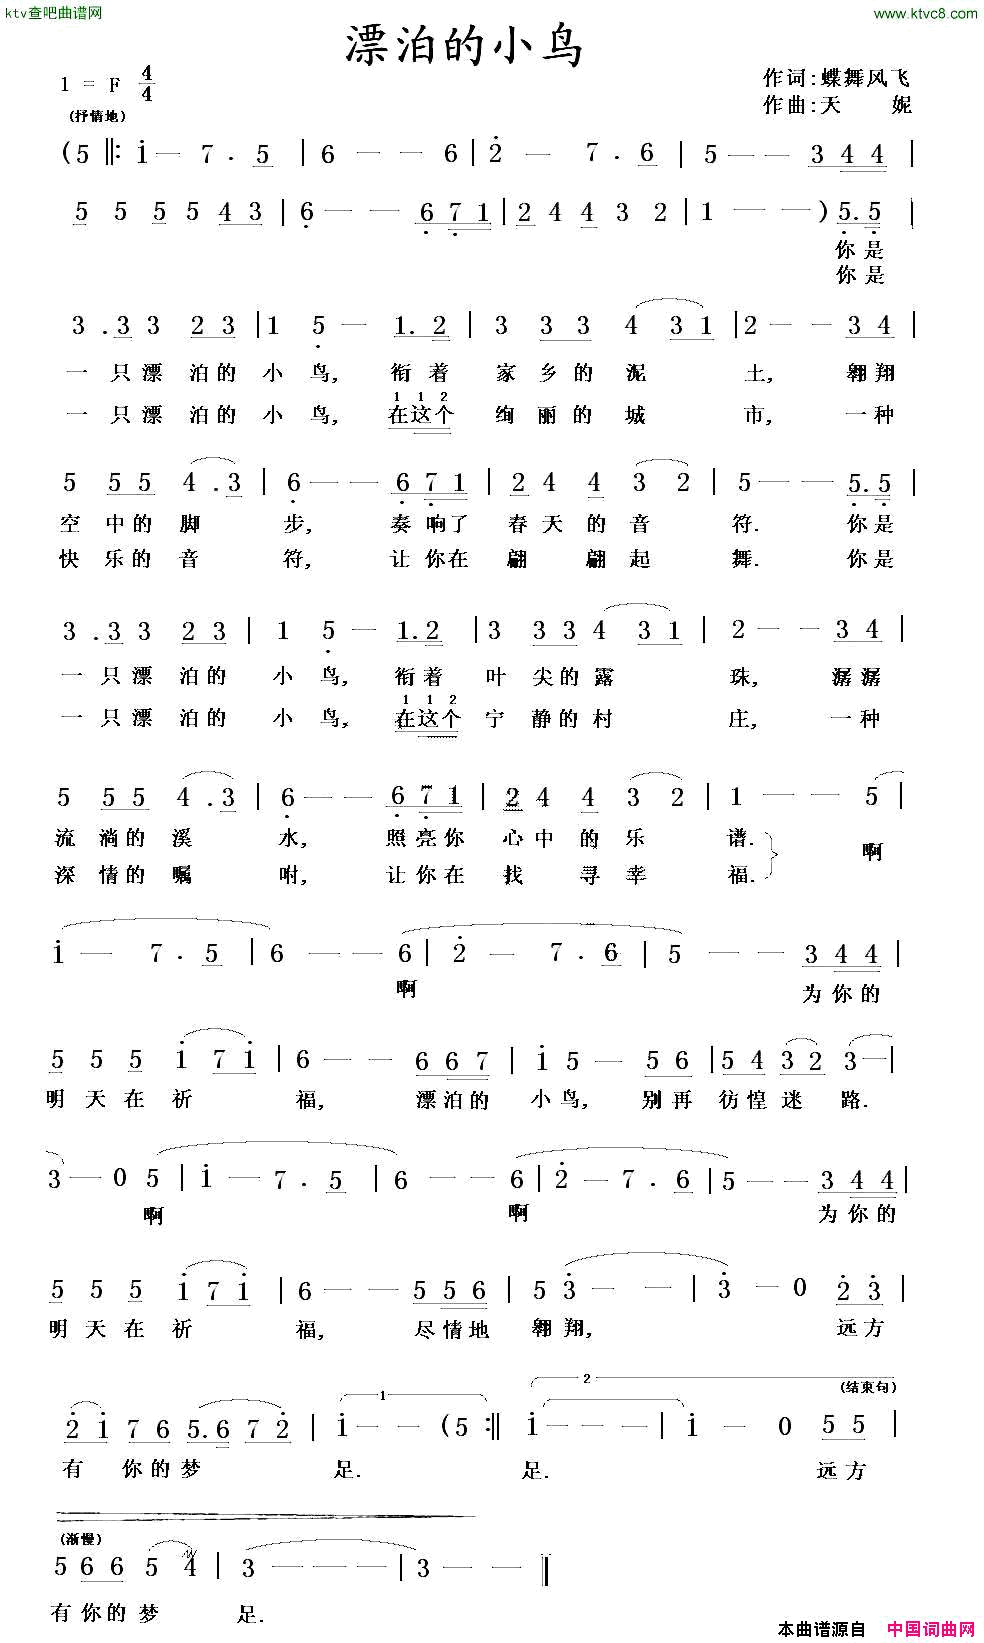 ktv查吧曲谱网
www.ktvc8.com
漂泊的小鸟
1 = F 4/4
作词:蝶舞风飞
(抒情地)
作曲:天 妮
(5 ‖: i — 7 . 5 | 6 — — 6 | 2 — 7 . 6 | 5 — — 3 4 4 |
5 5 5 5 4 3 | 6 — — 6 7 1 | 2 4 4 3 2 | 1 — — ) 5. 5 |
你是
你是
3 . 3 3 2 3 | 1 5 — 1. 2 | 3 3 3 4 3 1 | 2 — — 3 4 |
一只漂 泊的 小 鸟, 衔着 家 乡的 泥 土, 翱翔
1 1 2
一只漂 泊的 小 鸟, 在这个 绚 丽的 城 市, 一种
5 5 5 4 . 3 | 6 — — 6 7 1 | 2 4 4 3 2 | 5 — — 5. 5 |
空 中的 脚 步, 奏响了 春天的音 符. 你是
快 乐的 音 符, 让你在 翩 翩起 舞. 你是
3 . 3 3 2 3 | 1 5 — 1. 2 | 3 3 3 4 3 1 | 2 — — 3 4 |
一只漂 泊的 小 鸟, 衔着 叶 尖的露 珠, 潺潺
1 1 2
一只漂 泊的 小 鸟, 在这个 宁 静的村 庄, 一种
5 5 5 4 . 3 | 6 — — 6 7 1 | 2 4 4 3 2 | 1 — — 5 |
流 淌的 溪 水, 照亮你 心中的乐 谱.
啊
深 情的 嘱 咐, 让你在 找 寻幸 福.
i — 7 . 5 | 6 — — 6 | 2 — 7 . 6 | 5 — — 3 4 4 |
啊 为你的
5 5 5 i 7 i | 6 — — 6 6 7 | i 5 — 5 6 | 5 4 3 2 3 — |
明天在祈 福, 漂泊的 小鸟, 别再 彷徨迷 路.
3 — 0 5 | i — 7 . 5 | 6 — — 6 | 2 — 7 . 6 | 5 — — 3 4 4 |
啊 啊 为你的
5 5 5 i 7 i | 6 — — 5 5 6 | 5 3 — — | 3 — 0 2 3 |
明天在祈 福, 尽情地 翱翔, 远方
1 2 (结束句)
2 i 7 6 5. 6 7 2 | i — — (5 :‖ i — — | i — 0 5 5 |
有 你的梦 足. 足. 远方
(渐慢)
5 6 6 5 4 | 3 — — — | 3 — — ‖
有你的梦 足.
本曲谱源自 中国词曲网